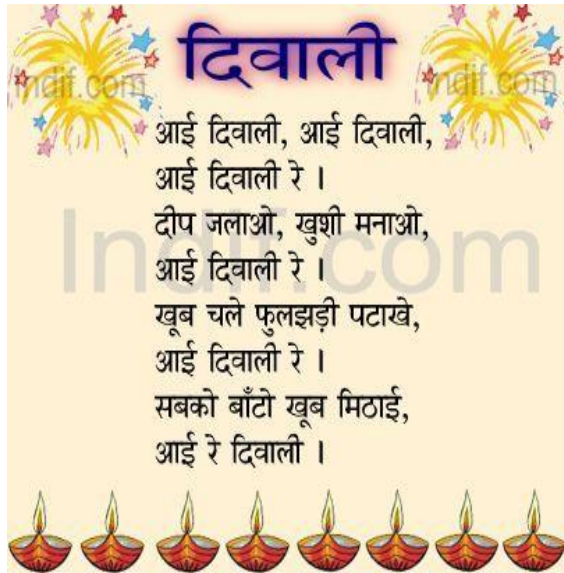 Indif.com
दिवाली
Indif.com
आई दिवाली, आई दिवाली,
आई दिवाली रे ।
दीप जलाओ, खुशी मनाओ,
Indif.com
आई दिवाली रे ।
खूब चले फुलझड़ी पटाखे,
आई दिवाली रे ।
सबको बाँटो खूब मिठाई,
आई रे दिवाली ।